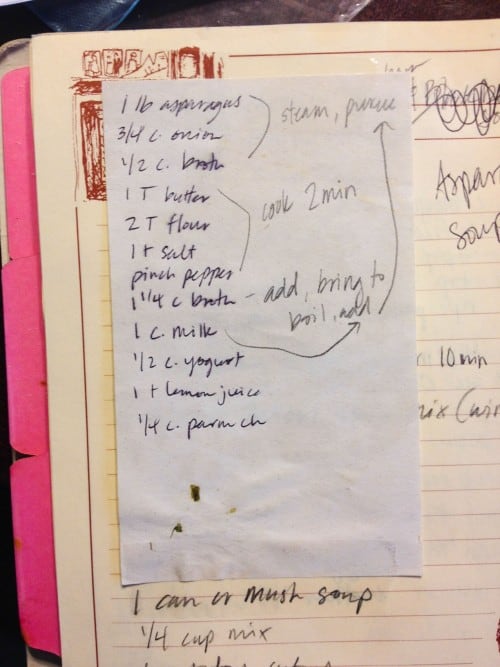 1 lb asparagus
3/4 c. onion
1/2 c. broth
steam, puree
1 T butter
2 T flour
1 t salt
pinch pepper
cook 2 min
1 1/4 c broth - add, bring to
boil, add
1 c. milk
1/2 c. yogurt
1 t lemon juice
1/4 c. parm ch
Aspar
soup
10 min
1 can cr mush soup
1/4 cup mix